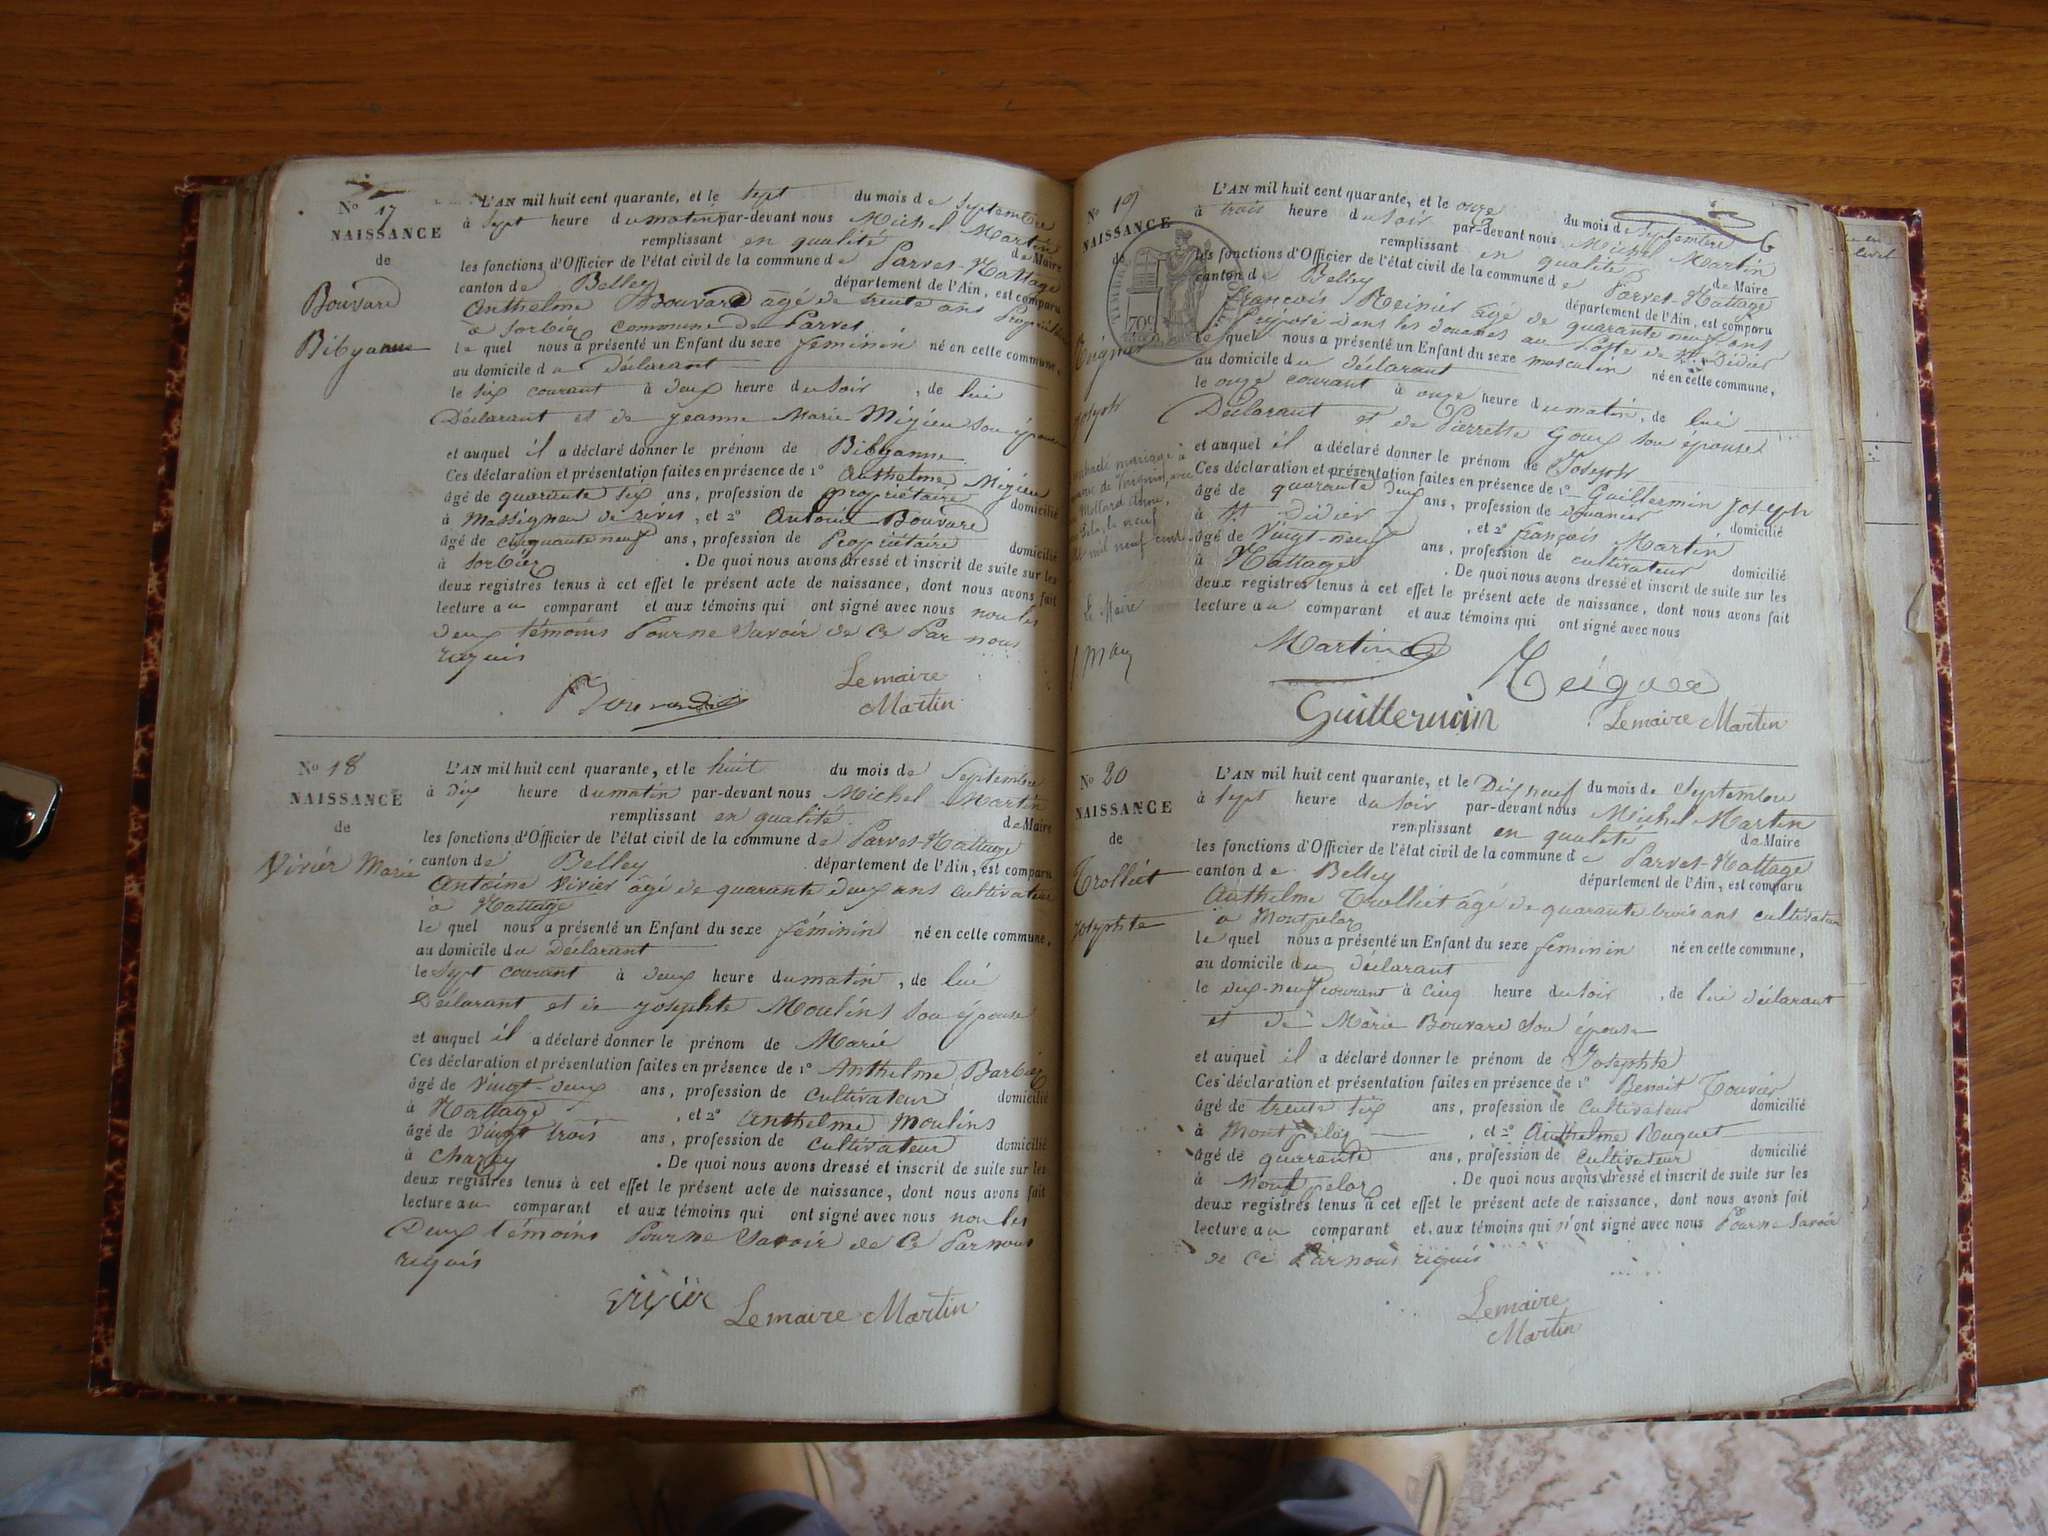 No 17
NAISSANCE
de
Bouvard
Bibyanne
L'AN mil huit cent quarante, et le sept du mois de Septembre
à sept heure du matin par-devant nous Michel Martin
remplissant en qualité de Maire
les fonctions d'Officier de l'état civil de la commune de Parves-Nattage
canton de Belley département de l'Ain, est comparu
Anthelme Bouvard âgé de trente ans Propriétaire
à Sorbier commune de Parves
le quel nous a présenté un Enfant du sexe féminin né en cette commune,
au domicile du Déclarant
le six courant à deux heure du soir, de lui
Déclarant et de Jeanne Marie Migieu son épouse
et auquel il a déclaré donner le prénom de Bibyanne
Ces déclaration et présentation faites en présence de 1° Anthelme Migieu
âgé de quarante six ans, profession de propriétaire domicilié
à Massigneu de rives, et 2° Antoine Bouvard
âgé de cinquante neuf ans, profession de Propriétaire domicilié
à Sorbier. De quoi nous avons dressé et inscrit de suite sur les
deux registres tenus à cet effet le présent acte de naissance, dont nous avons fait
lecture au comparant et aux témoins qui ont signé avec nous non les
deux témoins Pour ne Savoir de Ce Par nous
requis
Bouvard
Lemaire
Martin
No 18
NAISSANCE
de
Vivier Marie
L'AN mil huit cent quarante, et le huit du mois de Septembre
à dix heure du matin par-devant nous Michel Martin
remplissant en qualité de Maire
les fonctions d'Officier de l'état civil de la commune de Parves-Nattage
canton de Belley département de l'Ain, est comparu
Antoine Vivier âgé de quarante deux ans cultivateur
à Nattage
le quel nous a présenté un Enfant du sexe féminin né en cette commune,
au domicile du Déclarant
le sept courant à deux heure du matin, de lui
Déclarant et de Josephte Moulins son épouse
et auquel il a déclaré donner le prénom de Marie
Ces déclaration et présentation faites en présence de 1° Anthelme Barbier
âgé de vingt-deux ans, profession de cultivateur domicilié
à Nattage, et 2° Anthelme Moulins
âgé de vingt trois ans, profession de cultivateur domicilié
à Charey. De quoi nous avons dressé et inscrit de suite sur les
deux registres tenus à cet effet le présent acte de naissance, dont nous avons fait
lecture au comparant et aux témoins qui ont signé avec nous non les
Deux témoins Pour ne Savoir de Ce Par nous
requis
Lemaire Martin
6
No 19
NAISSANCE
de
Joseph
Le Maire
L'AN mil huit cent quarante, et le onze du mois de Septembre
à trois heure du soir par-devant nous Michel Martin
remplissant en qualité de Maire
les fonctions d'Officier de l'état civil de la commune de Parves-Nattage
canton de Belley département de l'Ain, est comparu
françois Reinier âgé de quarante neuf ans
Préposé dans les douanes au Poste de St Didier
Le quel nous a présenté un Enfant du sexe masculin né en cette commune,
au domicile du déclarant
le onze courant à onze heure du matin, de lui
Déclarant et de Pierrette Goux son épouse
et auquel il a déclaré donner le prénom de Joseph
Ces déclaration et présentation faites en présence de 1° Guillermin Joseph
âgé de quarante deux ans, profession de douanier domicilié
à St Didier, et 2° françois Martin
âgé de vingt-neuf ans, profession de cultivateur domicilié
à Nattage. De quoi nous avons dressé et inscrit de suite sur les
deux registres tenus à cet effet le présent acte de naissance, dont nous avons fait
lecture au comparant et aux témoins qui ont signé avec nous
Martin
Guillermin
Lemaire Martin
No 20
NAISSANCE
de
Trolliet
Josephte
L'AN mil huit cent quarante, et le Dix neuf du mois de Septembre
à sept heure du soir par-devant nous Michel Martin
remplissant en qualité de Maire
les fonctions d'Officier de l'état civil de la commune de Parves-Nattage
canton de Belley département de l'Ain, est comparu
Anthelme Trolliet âgé de quarante trois ans cultivateur
à Montpelaz
le quel nous a présenté un Enfant du sexe feminin né en cette commune,
au domicile du déclarant
le dix-neuf courant à cinq heure du soir, de lui déclarant
et de Marie Bouvard son épouse
et auquel il a déclaré donner le prénom de Josephte
Ces déclaration et présentation faites en présence de 1° Benoit Touvier
âgé de trente six ans, profession de cultivateur domicilié
à Montpelaz, et 2° Anthelme Ruguet
âgé de quarante ans, profession de cultivateur domicilié
à Montpelaz. De quoi nous avons dressé et inscrit de suite sur les
deux registres tenus à cet effet le présent acte de naissance, dont nous avons fait
lecture au comparant et aux témoins qui n'ont signé avec nous Pour ne Savoir
de Ce Par nous requis
Lemaire
Martin